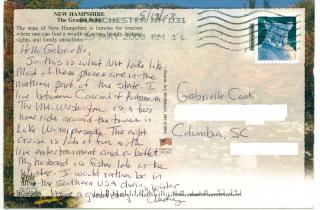 NEW HAMPSHIRE
The Granite State
The state of New Hampshire is famous for tourism
where one can find a wealth of scenic beauty, historic
sights, and family attractions
MANCHESTER NH 031
5/13/08
2008 PM 1 L
Hello Gabrielle,
So this is what NH looks like.
Most of these places are in the
northern part of the state. I
live between Concord &
The Mt. Washington is a two
hour ride around the towns in
Lake Winnipesaukee. The
Cruise is lots of fun with
live entertainment and a buffet.
My husband ice fishes
Winter. I would rather be in
the Southern USA during winter
Have a great day
Cindy
Gabrielle Cook
Columbia, SC